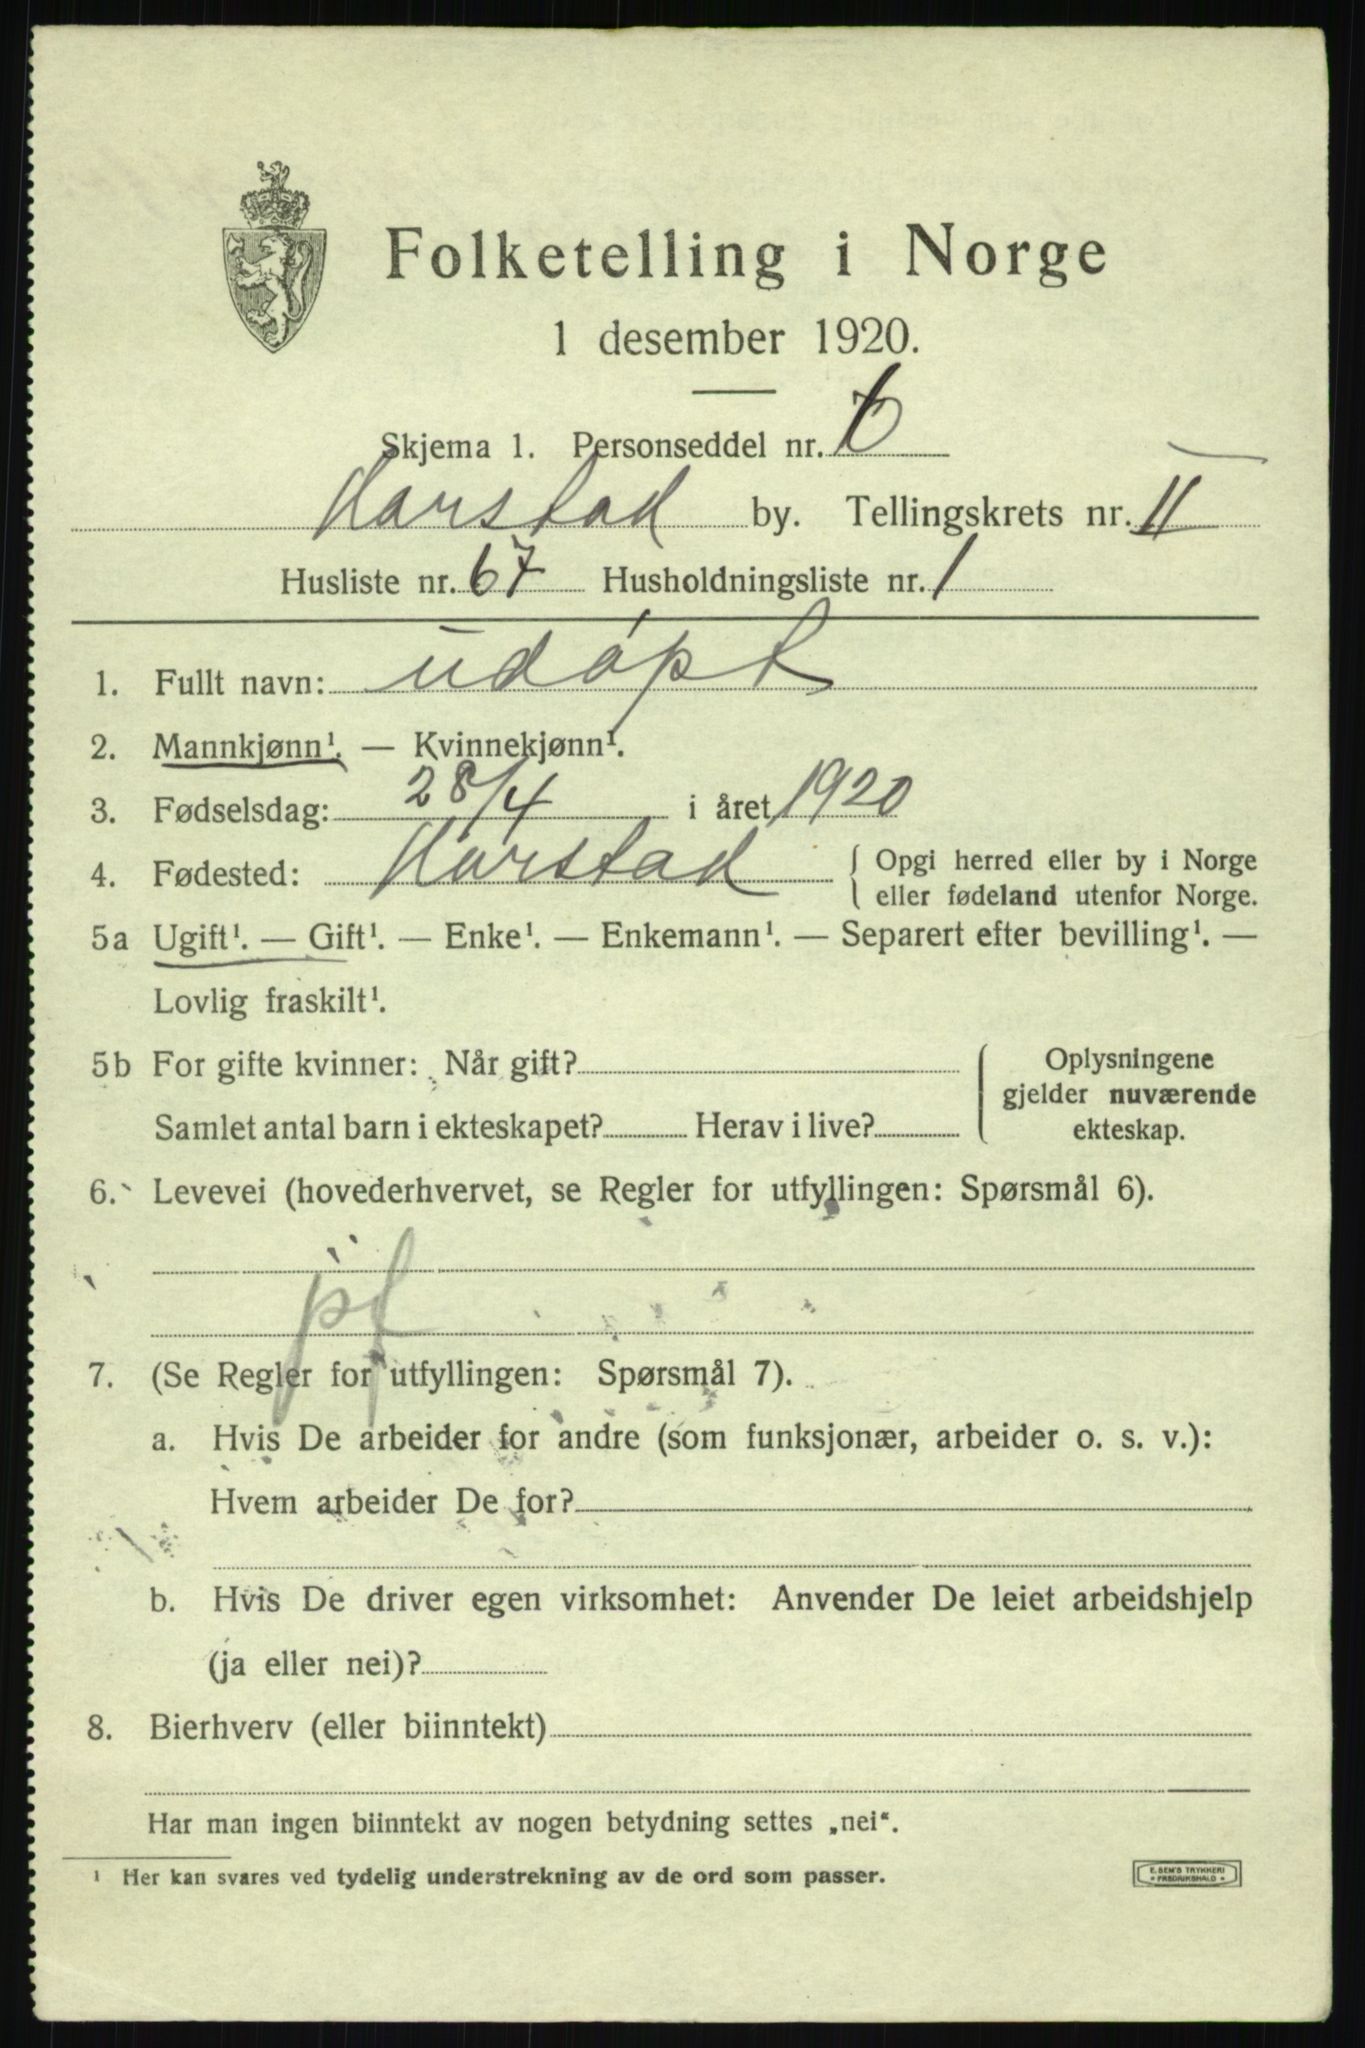 Folketelling i Norge
1 desember 1920.
Skjema 1. Personseddel nr.
Harstad by. Tellingskrets nr. II
Husliste nr. 67 Husholdningsliste nr. 1
1. Fullt navn: udöpt
2. Mannkjønn¹. — Kvinnekjønn¹.
3. Fødselsdag: 28/4 i året 1920
4. Fødested: Harstad { Opgi herred eller by i Norge
eller fødeland utenfor Norge.
5a Ugift¹. — Gift¹. — Enke¹. — Enkemann¹. — Separert efter bevilling¹. —
Lovlig fraskilt¹.
5b For gifte kvinner: Når gift? { Oplysningene
gjelder nuværende
Samlet antal barn i ekteskapet? Herav i live? ekteskap.
6. Levevei (hovederhvervet, se Regler for utfyllingen: Spørsmål 6).
7. (Se Regler for utfyllingen: Spørsmål 7).
a. Hvis De arbeider for andre (som funksjonær, arbeider o. s. v.):
Hvem arbeider De for?
b. Hvis De driver egen virksomhet: Anvender De leiet arbeidshjelp
(ja eller nei)?
8. Bierhverv (eller biinntekt)
Har man ingen biinntekt av nogen betydning settes „nei“.
¹ Her kan svares ved tydelig understrekning av de ord som passer.
E. SEM'S TRYKKERI
FREDRIKSHALD